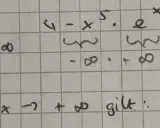 4 - x⁵ · eˣ
∞ -∞ · +∞
x → +∞ gilt: